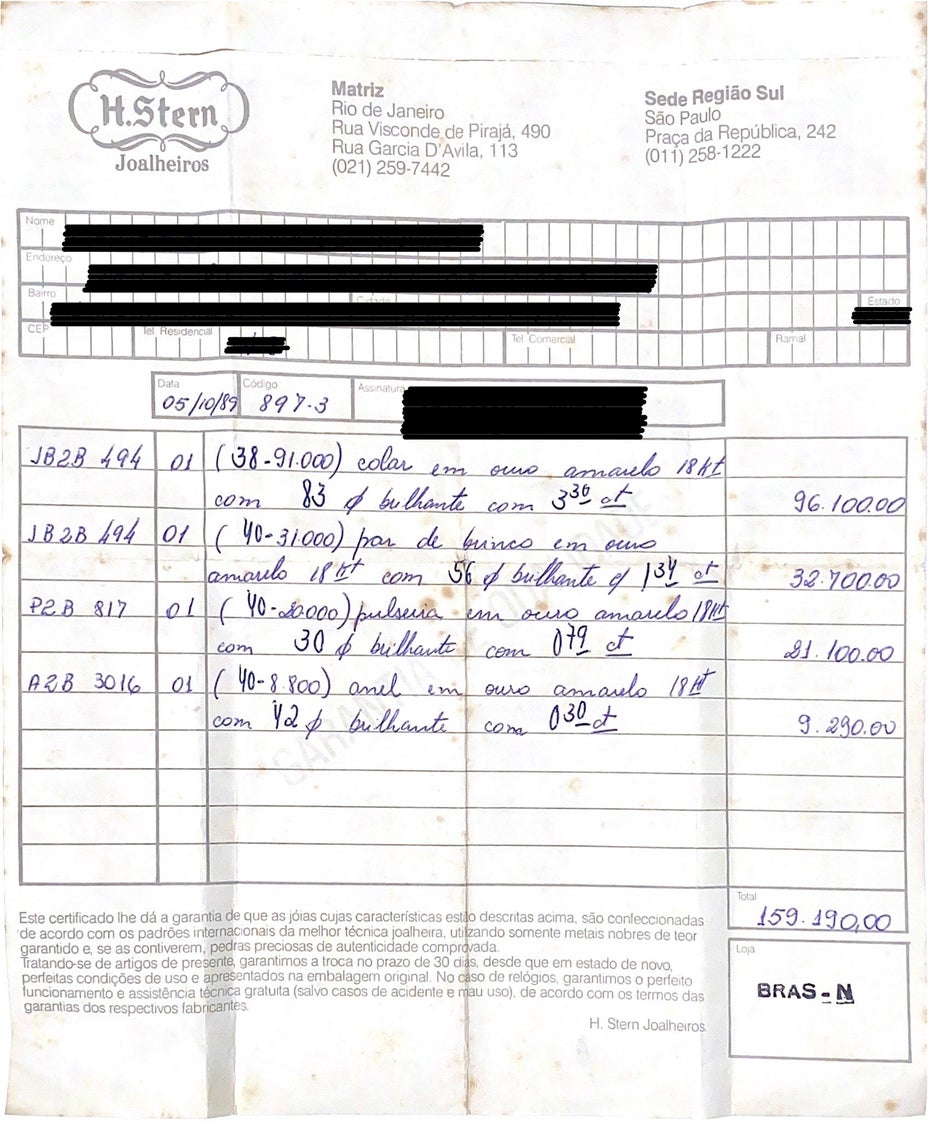 H.Stern
Joalheiros
Matriz
Rio de Janeiro
Rua Visconde de Pirajá, 490
Rua Garcia D'Avila, 113
(021) 259-7442
Sede Região Sul
São Paulo
Praça da República, 242
(011) 258-1222
Nome
Endereço
Bairro
Cidade
Estado
CEP
Tel. Residencial
Tel. Comercial
Ramal
Data
05/10/89
Código
897-3
Assinatura
JB2B 494 01 (38-91.000) colar em ouro amarelo 18 kt
com 83 ø brilhante com 3 36 ct 96.100.00
JB2B 494 01 (40-31.000) par de brinco em ouro
amarelo 18 kt com 56 ø brilhante c/ 1 34 ct 32.700.00
P2B 817 01 (40-20.000) pulseira em ouro amarelo 18 kt
com 30 ø brilhante com 0 79 ct 21.100.00
A2B 3016 01 (40-8.800) anel em ouro amarelo 18 kt
com 42 ø brilhante com 0 30 ct 9.290.00
GARANTIA DE QUALIDADE
Total
159.190,00
Este certificado lhe dá a garantia de que as jóias cujas características estão descritas acima, são confeccionadas
de acordo com os padrões internacionais da melhor técnica joalheira, utilizando somente metais nobres de teor
garantido e, se as contiverem, pedras preciosas de autenticidade comprovada.
Tratando-se de artigos de presente, garantimos a troca no prazo de 30 dias, desde que em estado de novo,
perfeitas condições de uso e apresentados na embalagem original. No caso de relógios, garantimos o perfeito
funcionamento e assistência técnica gratuita (salvo casos de acidente e mau uso), de acordo com os termos das
garantias dos respectivos fabricantes.
H. Stern Joalheiros.
Loja
BRAS-N